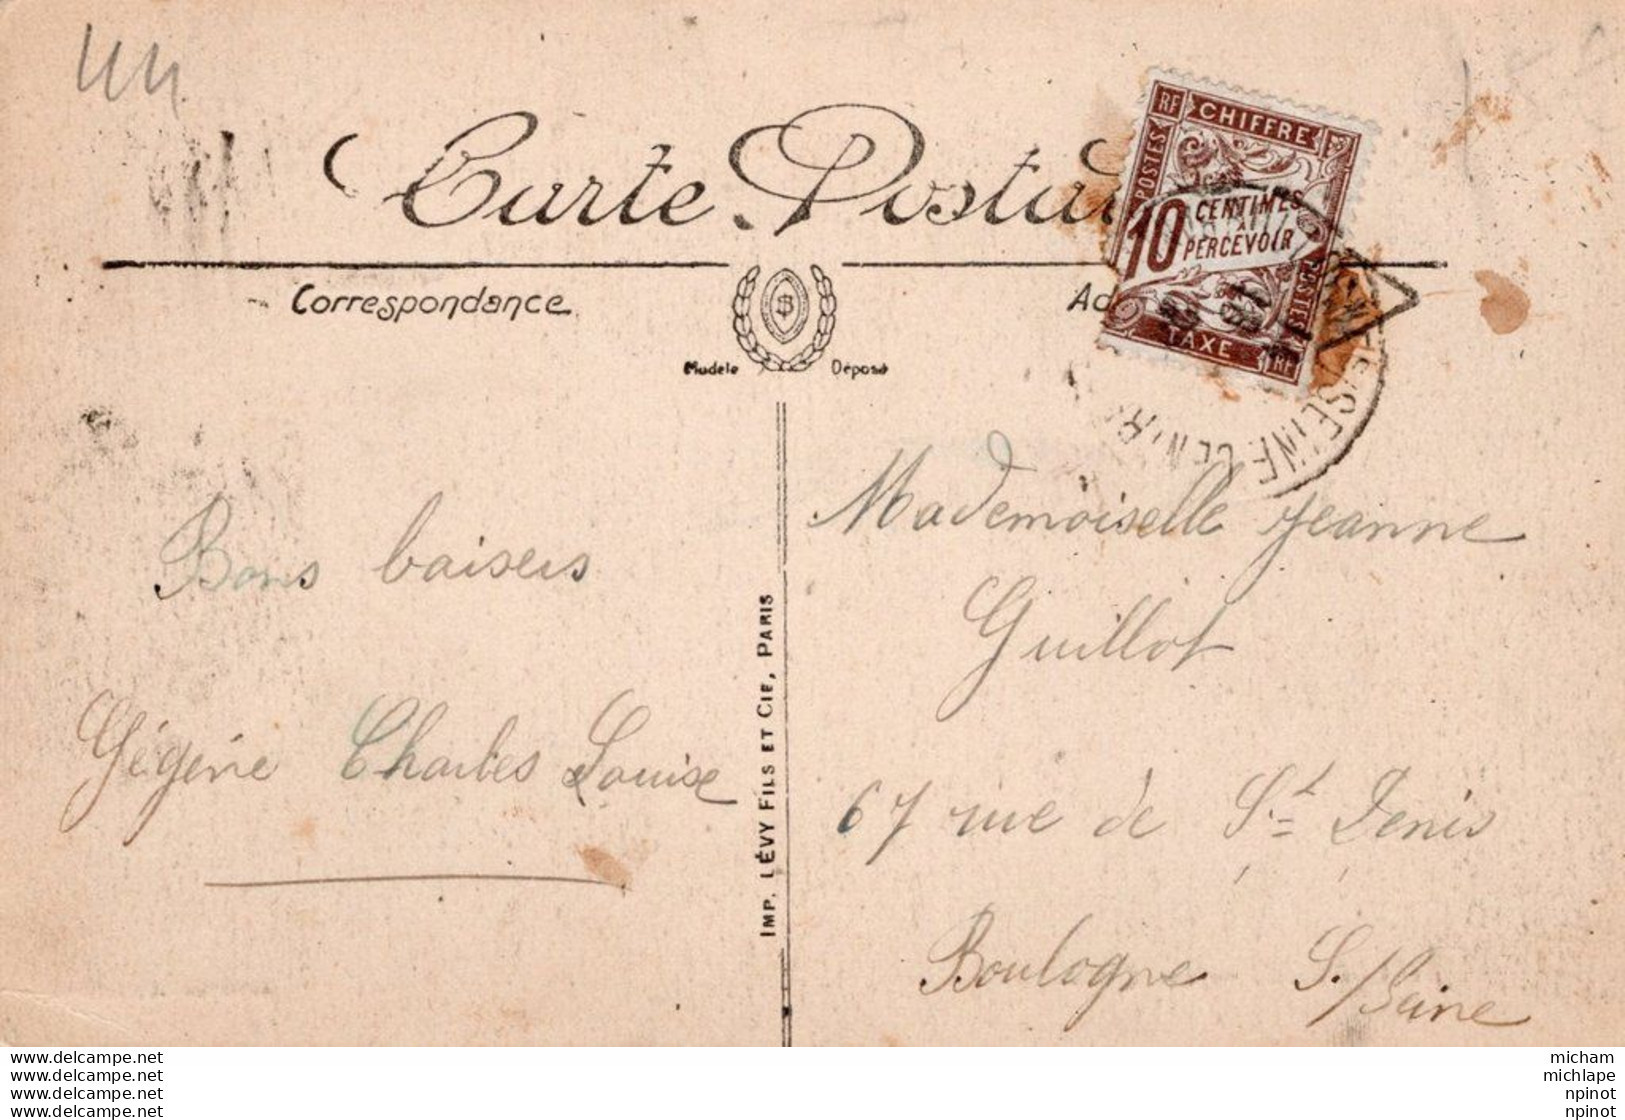 Carte Postal
Correspondance
Modèle Déposé
RF CHIFFRE
POSTES
10 CENTIMES
À
PERCEVOIR
POSTES
TAXE
RF
SEINE
Bons baisers
Gégène Charles Louise
IMP. LÉVY FILS ET CIE, PARIS
Mademoiselle Jeanne
Guillot
67 rue de St Denis
Boulogne S./Seine
www.delcampe.net
www.delcampe.net
www.delcampe.net
www.delcampe.net
micham
michlape
npinot
npinot